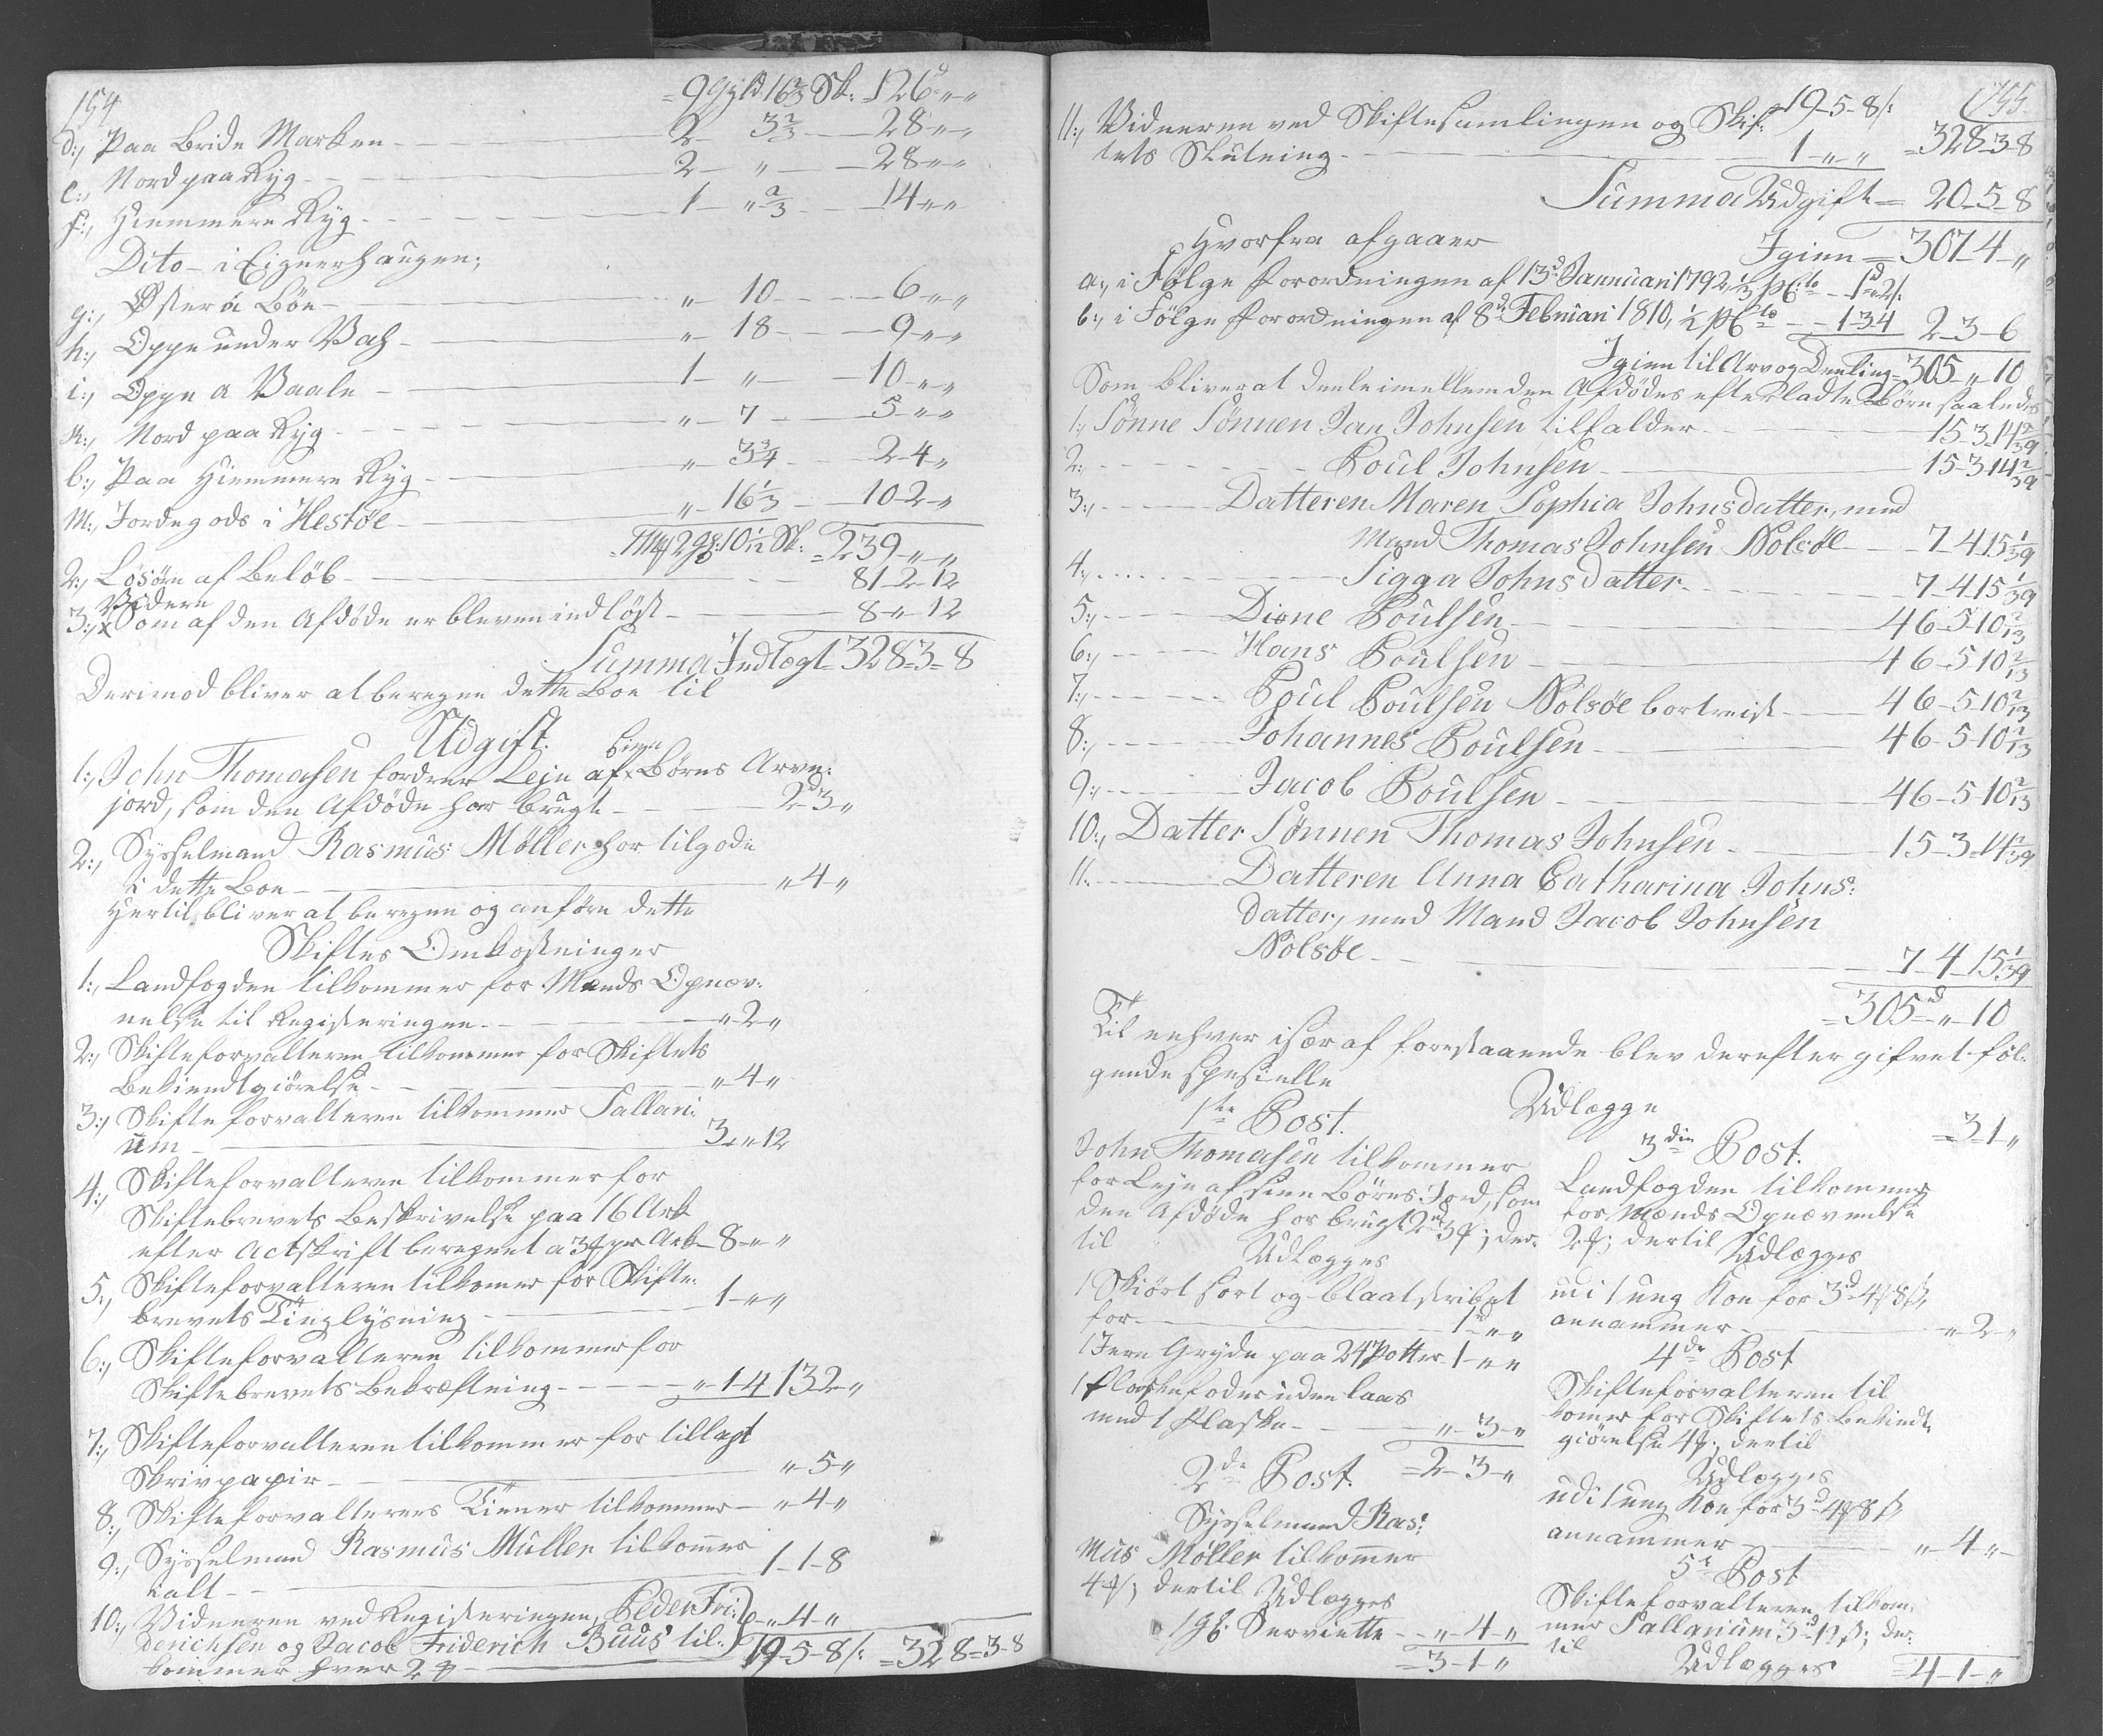 154
9 Gyld 16 2/3 Sk: 126 " "
d:, Paa Bride Marken - 2 - 3 2/3 - 28 " "
e:, Nord paa Ryg - 2 - " - 28 " "
f:, Hiemmere Ryg - 1 - " 2/3 - 14 " "
Dito - i Eignerhaugen;
g:, Øster á Böe - " - 10 - 6 " "
h:, Oppe under Vah - " - 18 - 9 " "
i:, Oppe a Vaale - 1 - " - 10 " "
k:, Nord paa Ryg - " - 7 - 5 " "
b:, Paa Hiemmere Ryg - " - 3 3/4 - 2 - 4 "
M:, Jordegods i Hestøe - " - 16 1/3 - 10 - 2 "
10 1/12 Sk: = 239 " "
2:, Løsøre af Beløb - 81 - 2 - 12
Videre
3:, Som af den Afdøde er bleven indløst - 8 " 12
Summa Indtægt = 328 = 3 = 8
Derimod bliver at beregne dette Boe til
Udgift.
1:, John Thomasen fordrer Leje af sine Børns Arve-
jord, som den Afdøde har brugt - 2 - 3 "
2:, Sysselmand Rasmus Møller har tilgode
i dette Boe - " 4 "
Hertil bliver at beregne og anføre dette
Skiftes Omkostninger
1:, Landfogden tilkommer for Mænds Opnæv-
nelse til Registeringen - " 2 "
2:, Skifteforvalteren tilkommer for Skiftets
Bekiendtgiørelse - " 4 "
3:, Skifteforvalteren tilkommer Sallari-
um - 3 " 12
4:, Skifteforvalteren tilkommer for
Skiftebrevets Beskrivelse paa 16 Ark
efter Actskrift beregnet a 3 ℔ pr Ark - 8 " "
5:, Skifteforvalteren tilkomer for Skifte-
brevets Tinglysning - 1 " "
6:, Skifteforvalteren tilkommer for
Skiftebrevets Bekræftning - " 1 - 4 13 2 "
7:, Skifteforvalteren tilkommer for tillagt
Skrivpapir - " 5 "
8:, Skifteforvalterens Tiener tilkommer - " 4 "
9:, Sysselmand Rasmus Müller tilkommer
ialt - 1 - 1 - 8
10:, Vidneren ved Registeringen, Peder Fri-
derichsen og Jacob Friderich Buus til- - " 4 "
kommer hver 2 ℔ - 19 - 5 - 8 /: = 328 = 3 - 8
155
19 - 5 - 8 /:
11:, Vidneren ved Skiftesamlingen og Skif-
tets Slutning - 1 " " = 328 - 3 - 8
Summa Udgift = 20 - 5 - 8
Hvorfra afgaaer Igien = 307 - 4 "
a:, i Følge Forordningen af 13d Januari 1792 1/3 pCto - 1 " 2 /:
b:, i Følge Forordningen af 8d Februari 1810, 1/2 pCto - 1 - 3 4 2 - 3 - 6
Igien til Arv og Deeling = 305 " 10
Som bliver at deele imellem den Afdødes efterladte Børn saaledes
1:, Sønne Sønnen Jan Johnsen tilfalder - 15 - 3 - 14 2/39
2:, - Poul Johnsen - 15 - 3 - 14 2/39
3:, - Datteren Maren Sophia Johnsdatter, med
Mand Thomas Johnsen Nolsøe - 7 - 4 15 1/39
4:, - Sigga Johnsdatter - 7 - 4 15 1/39
5:, - Dione Poulsen - 46 - 5 10 2/13
6:, - Hans Poulsen - 46 - 5 10 2/13
7:, - Poul Poulsen Nolsøe bortreist - 46 - 5 - 10 2/13
8:, - Johannes Poulsen - 46 - 5 10 2/13
9:, - Jacob Poulsen - 46 - 5 - 10 2/13
10:, Datter Sønnen Thomas Johnsen - 15 - 3 - 14 2/39
11. - Datteren Anna Catharina Johns-
datter, med Mand Jacob Johnsen
Nolsøe - 7 - 4 - 15 1/39
= 305 " 10
Til enhver især af forestaaende blev derefter gifvet føl-
gende spesielle
Udlægge
1ste Post.
John Thomasen tilkommer
for Leje af sine Børns Jord, som
den Afdøde har brugt 2d 3 ℔; der-
til Udlægges
1 Skiørt sort og blaat stribet
for - 1 " "
1 Jern Gryde paa 24 Potter 1 " "
1 Flaskefoder uden laas
med 1 Flaske - " 3 "
= 2 - 3 "
2de Post.
Sysselmand Ras-
mus Møller tilkommer
4 ℔; dertil Udlægges
1 Serviette - " 4 "
= 3 - 1 "
= 3 - 1 "
3die Post.
Landfogden tilkommer
for Mænds Opnævnelse
2 ℔; dertil Udlægges
udi 1 ung Koe for 3d 4 ℔ 8 ß,
annammer - " 2 "
4de Post
Skifteforvalteren til
komer for Skiftets Bekiendt-
giørelse 4 ℔; dertil
Udlægges
udi 1 ung Koe for 3d 4 ℔ 8 ß
annammer - " 4 "
5te Post
Skifteforvalteren tilkom-
mer Sallarium 3d 12 ß; der-
til Udlægges = 4 - 1 - "